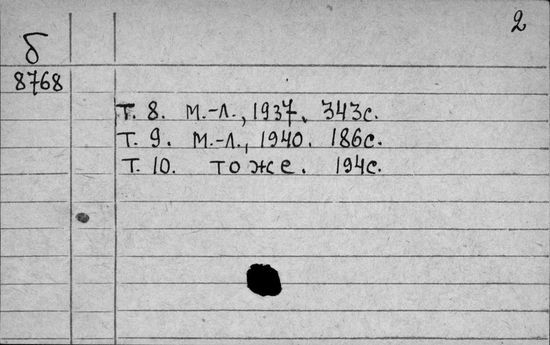 2
б
8768
Т. 8. М.-Л., 1937. 343с.
Т. 9. М.-Л., 1940. 186с.
Т. 10. То же. 194с.